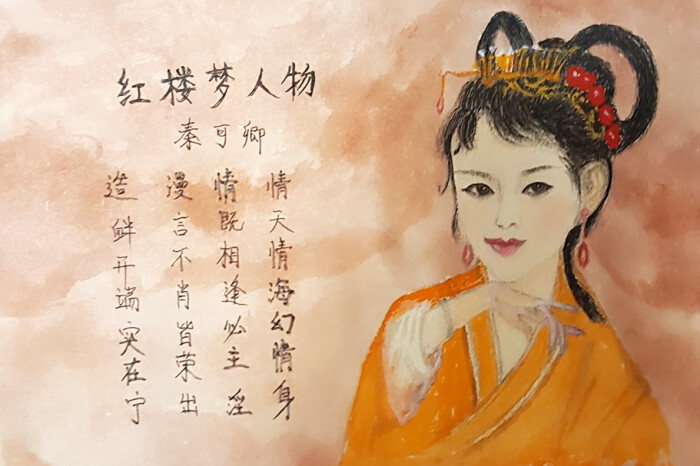 红楼梦人物
秦可卿
情天情海幻情身
情既相逢必主淫
漫言不肖皆荣出
造衅开端实在宁